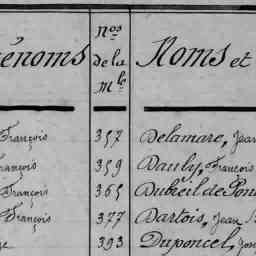 énoms Nos de la Mle Noms et
François 357 Delamare, Jean
François 359 Dauby, François
François 365 Dubreil de Pon
François 377 Dartois, Jean
393 Duponcel, Jos